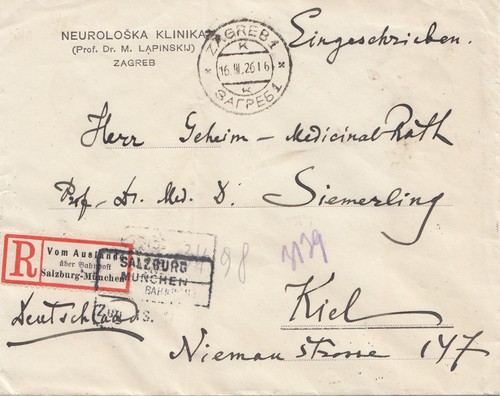 NEUROLOŠKA KLINIKA
(Prof. Dr. M. LAPINSKIJ)
ZAGREB
ZAGREB 1
K
16. III. 26 16
K
ЗАГРЕБ 1
Eingeschrieben.
Herr Geheim-Medicinal Rath
Prof. Dr. Med. D. Siemerling
3139
R
Vom Ausland
über Bahnpost
Salzburg-München
SALZBURG
MÜNCHEN
BAHN
Deutschland
Kiel
Niemau strasse 147